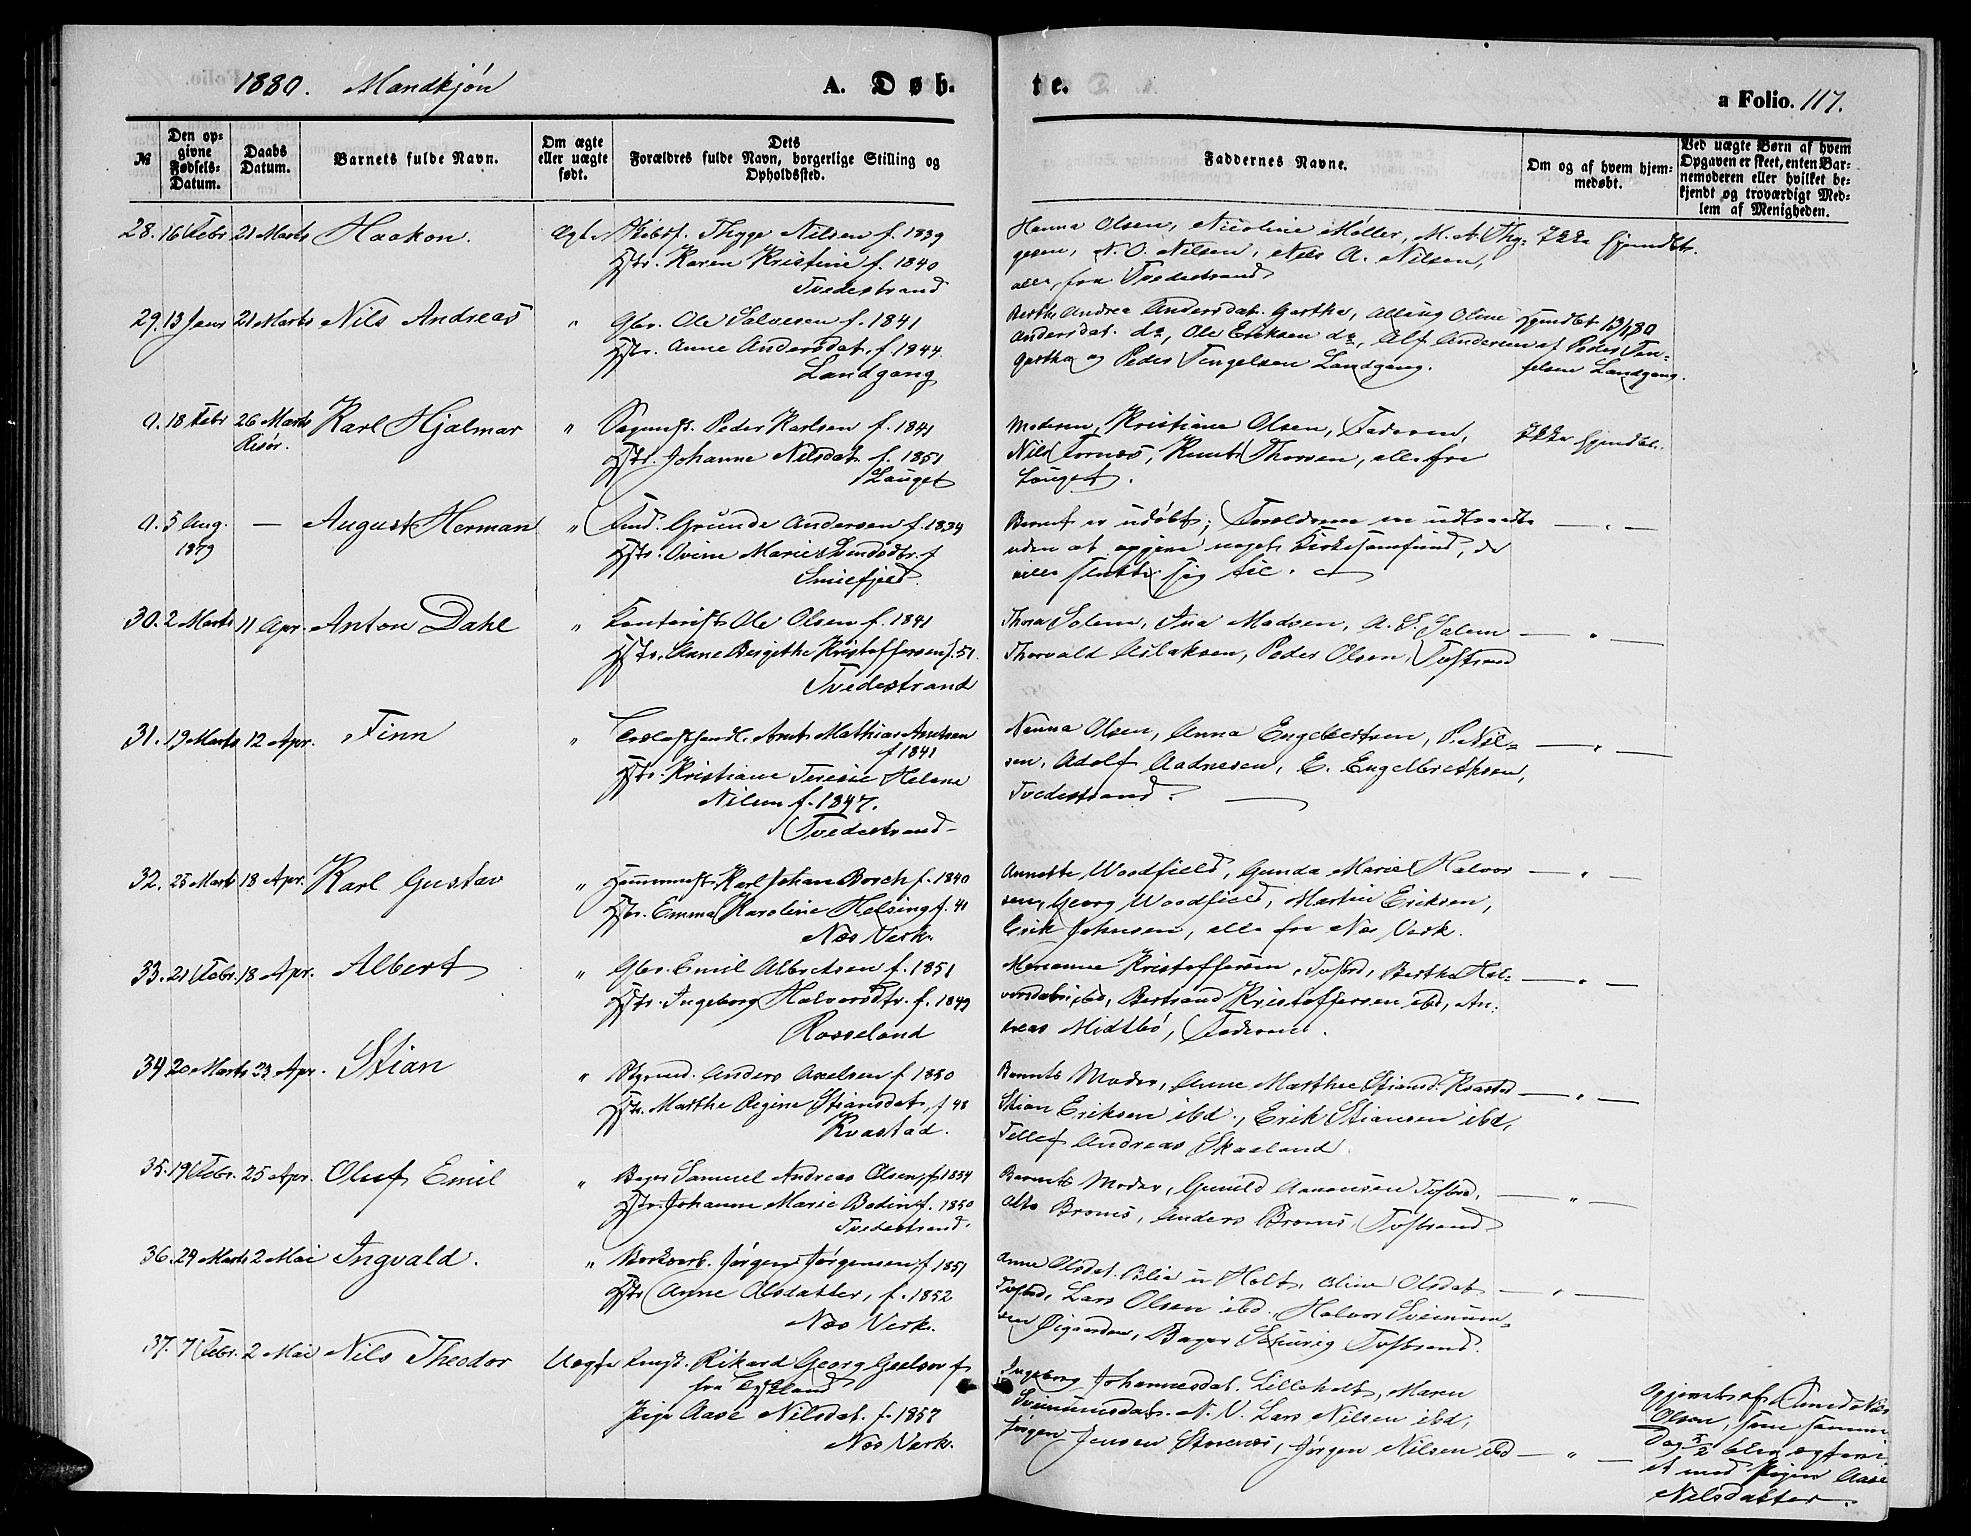 1880. Mandkjøn
A. Døb-
te.
a Folio. 117.
№
Den op-
givne
Fødsels-
Datum.
Daabs
Datum.
Barnets fulde Navn.
Om ægte
eller uægte
født.
Dets
Forældres fulde Navn, borgerlige Stilling og
Opholdssted.
Faddernes Navne.
Om og af hvem hjem-
medøbt.
Ved uægte Børn af hvem
Opgaven er skeet, enten Bar-
nemoderen eller hvilket be-
kjendt og troværdigt Med-
lem af Menigheden.
28. 16 Febr 21 Marts Haakon. Ægte Skibsf. Thygge Nilsen f. 1839
Hstr. Karen Kristine f. 1840
Tvedestrand
Hanna Olsen, Nicoline Møller, M. A. Thy-
gesen, N. O. Nilsen, Nils A. Nilsen,
alle fra Tvedestrand
Ikke hjemdbt.
29. 13 Janr 21 Marts Nils Andreas " Gbr. Ole Salvesen f. 1841
Hstr. Anne Andersdat. f. 1844
Landgang
Berthe Andrea Andersdat. Gjertha, Olline
Andersdat. do, Ole Eriksen do, Alf Andersen
og Peder Tengelsen Landgang.
Hjemdbt 13/1 80
af Peder Ten-
gelsen Landgang.
0. 18 Febr 26 Marts Karl Hjalmar " Peder Karlsen f. 1841
Risør.
Hstr. Johanne Nilsdat f. 1851
Lauget
Moderen, Kristiane Olsen, Faderen,
Nils Tornæs, Knut Thorsen, alle fra
Lauget.
Ikke hjemdbt.
0. 5 Aug. — August Herman " Grunde Andersen f. 1834
1879
Hstr. Ovine Marie Svendsdtr. f
Smiefjeld
Barnet er udøbt; Forældrene er udtraadte
uden at opgive noget Kirkesamfund, de
ville slutte sig til.
— " —
30. 2 Marts 11 Apr. Anton Dahl " Kontorist Ole Olsen f. 1841
Hstr. Anne Birgithe Kristoffersen f. 51.
Tvedestrand
Thora Salem, Ina Madsen, A. E. Salem
Thorvald Aslaksen, Peder Olsen, Tvstrand
— " —
31. 19 Marts 12 Apr. Finn " Arnt Mathias Arntsen
f 1841
Hstr. Kristiane Teresie Helena
Nilsen f. 1847.
Tvedestrand
Nanna Olsen, Anna Engebretsen, P. Nil-
sen, Adolf Aadnesen, E. Engelbrethsen,
Tvedestrand.
— " —
32. 25 Marts 18 Apr. Karl Gustav " Hammersm. Karl Johan Borch f. 1840
Hstr. Emma Karoline Helsing f. 41
Næs Verk.
Annette Woodfield, Gunda Marie Halvor
sen, Georg Woodfield, Martin Eriksen,
Erik Johnsen, alle fra Næs Verk.
— " —
33. 21 Febr. 18 Apr. Albert " Gbr. Emil Albretsen f. 1851
Hstr. Ingeborg Halvorsdtr. f. 1849
Rosseland
Marianne Kristoffersen, Tvstrd, Berthe Hal-
vorsdatr ibd, Bertrand Kristoffersen ibd, An-
dreas Midtbø, Faderen.
— " —
34 20 Marts 23 Apr. Stian " Anders Axelsen f 1850
Hstr. Marthe Regine Stiansdat, f 48
Kvastad.
Barnets Moder, Anne Marthe Stiansd. Kvastad
Stian Eriksen ibd., Erik Stiansen ibd,
Tellef Andreas Skaaland.
— " —
35. 19 Febr. 25 Apr. Oluf Emil " Bager Samuel Andreas Olsen, f. 1854
Hstr. Johanne Marie Bodin f. 1850
Tvedestrand.
Barnets Moder, Gunild Aanonsen Tvstrd,
Broms, Anders Broms, Tvstrand
— " —
36. 24 Marts 2 Mai Ingvald. " Verkarb. Jørgen Jørgensen f 1851
Hstr. Anne Olsdatter, f. 1852
Næs Verk.
Anne Olsdat. i Holt, Aline Olsdat
Tvstrd, Lars Olsen ibd. Halvor Svenum-
sen Øigaarden, Bager Tvstrand.
— " —
37. 7 Febr. 2 Mai Nils Theodor Uægte Rikard Georg f
fra
Pige Aase Nilsdat. f. 1857
Næs Verk.
Ingeborg Johannesdat. Lilleholt, Maren
N. V. Lars Nilsen ibd,
Jørgen Jensen Storenæs, Jørgen Nilsen ibd
— " —
Opgivet af
Olsen, som samme
Dag 2/5 blev ægtevi-
et med Pigen Aase
Nilsdatter.